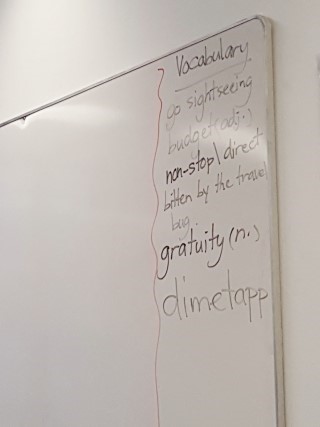 Vocabulary
go sightseeing
budget (adj.)
non-stop \ direct
bitten by the travel
bug
gratuity (n.)
dimetapp